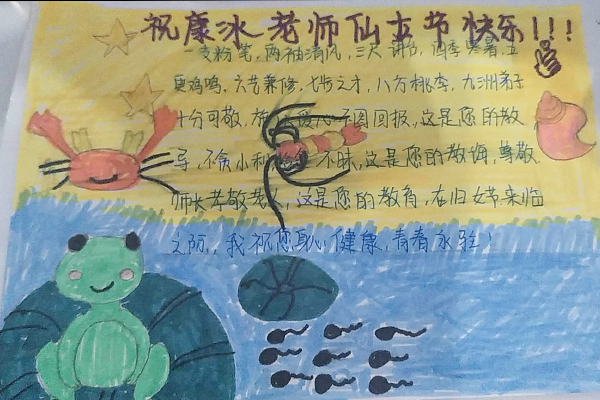 祝康冰老师仙女节快乐!!!
一支粉笔,两袖清风,三尺讲台,四季寒暑,五
更鸡鸣,六艺兼修,七步之才,八方桃李,九洲弟子
十分可敬,回报,这是您的教
导,不贪小利,不昧,这是您的教诲,尊敬
师长孝敬老人,这是您的教育,在妇女节来临
之际,我祝您身心健康,青春永驻!